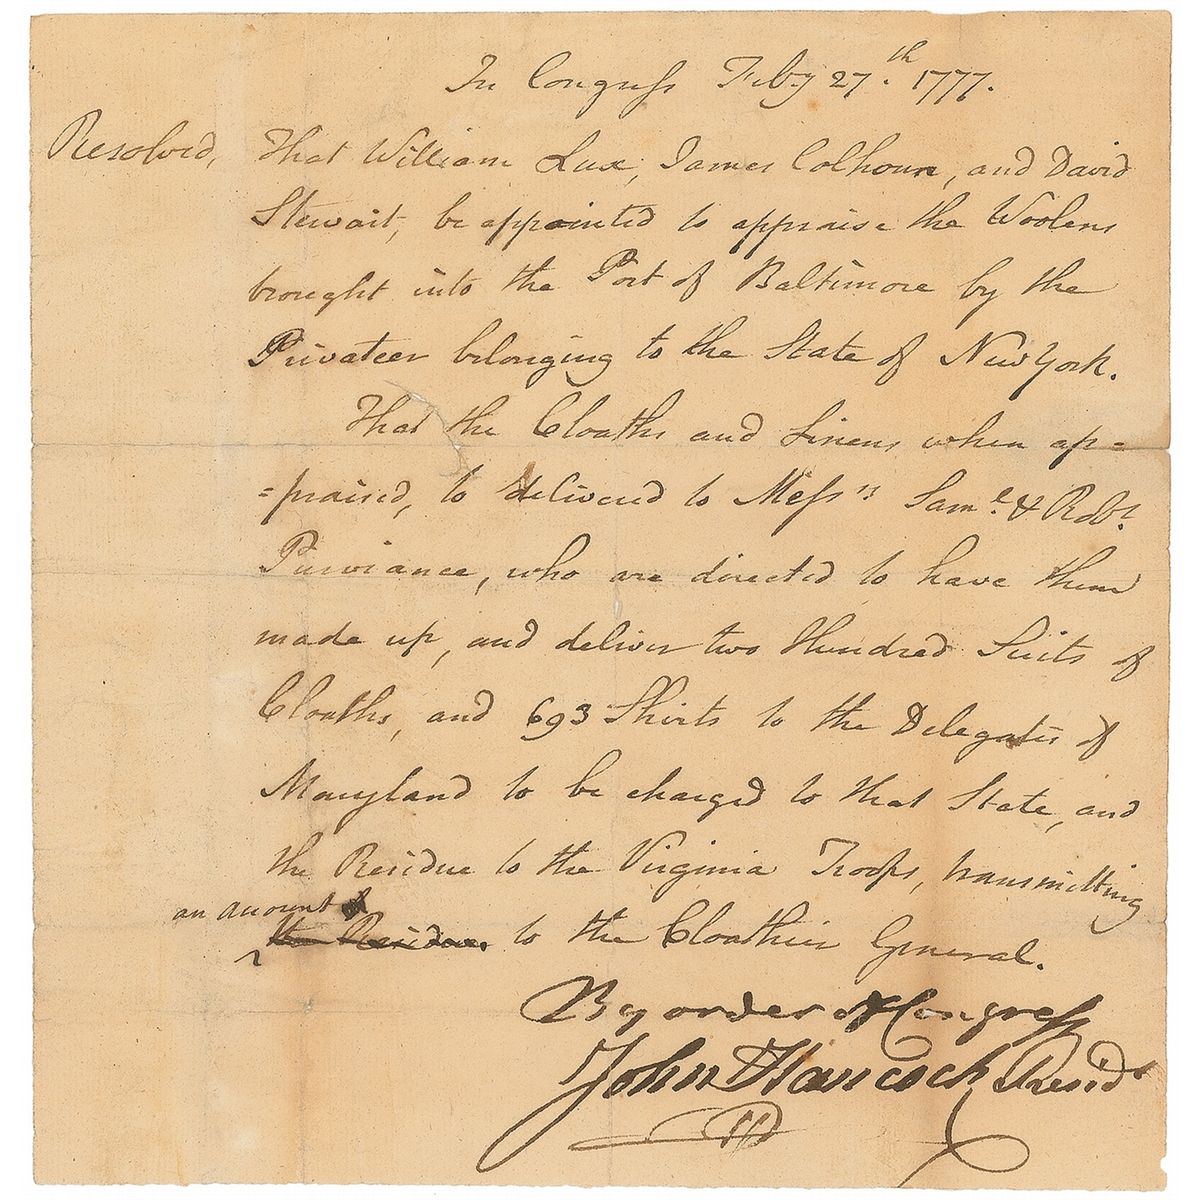 In Congress Feby 27.th 1777.
Resolved, That William Lux, James Calhoun, and David
Stewart, be appointed to appraise the Woolens
brought into the Port of Baltimore by the
Privateer belonging to the State of New York.
That the Cloaths and Linens when ap=
=praised, to delivered to Messrs Saml. & Robt.
Purviance, who are directed to have them
made up, and deliver two Hundred Suits of
Cloaths, and 693 Shirts to the Delegates of
Maryland to be charged to that State, and
the Residue to the Virginia Troops, transmitting
an amount of
the Residue to the Cloathier General.
By order of Congress
John Hancock Presidt